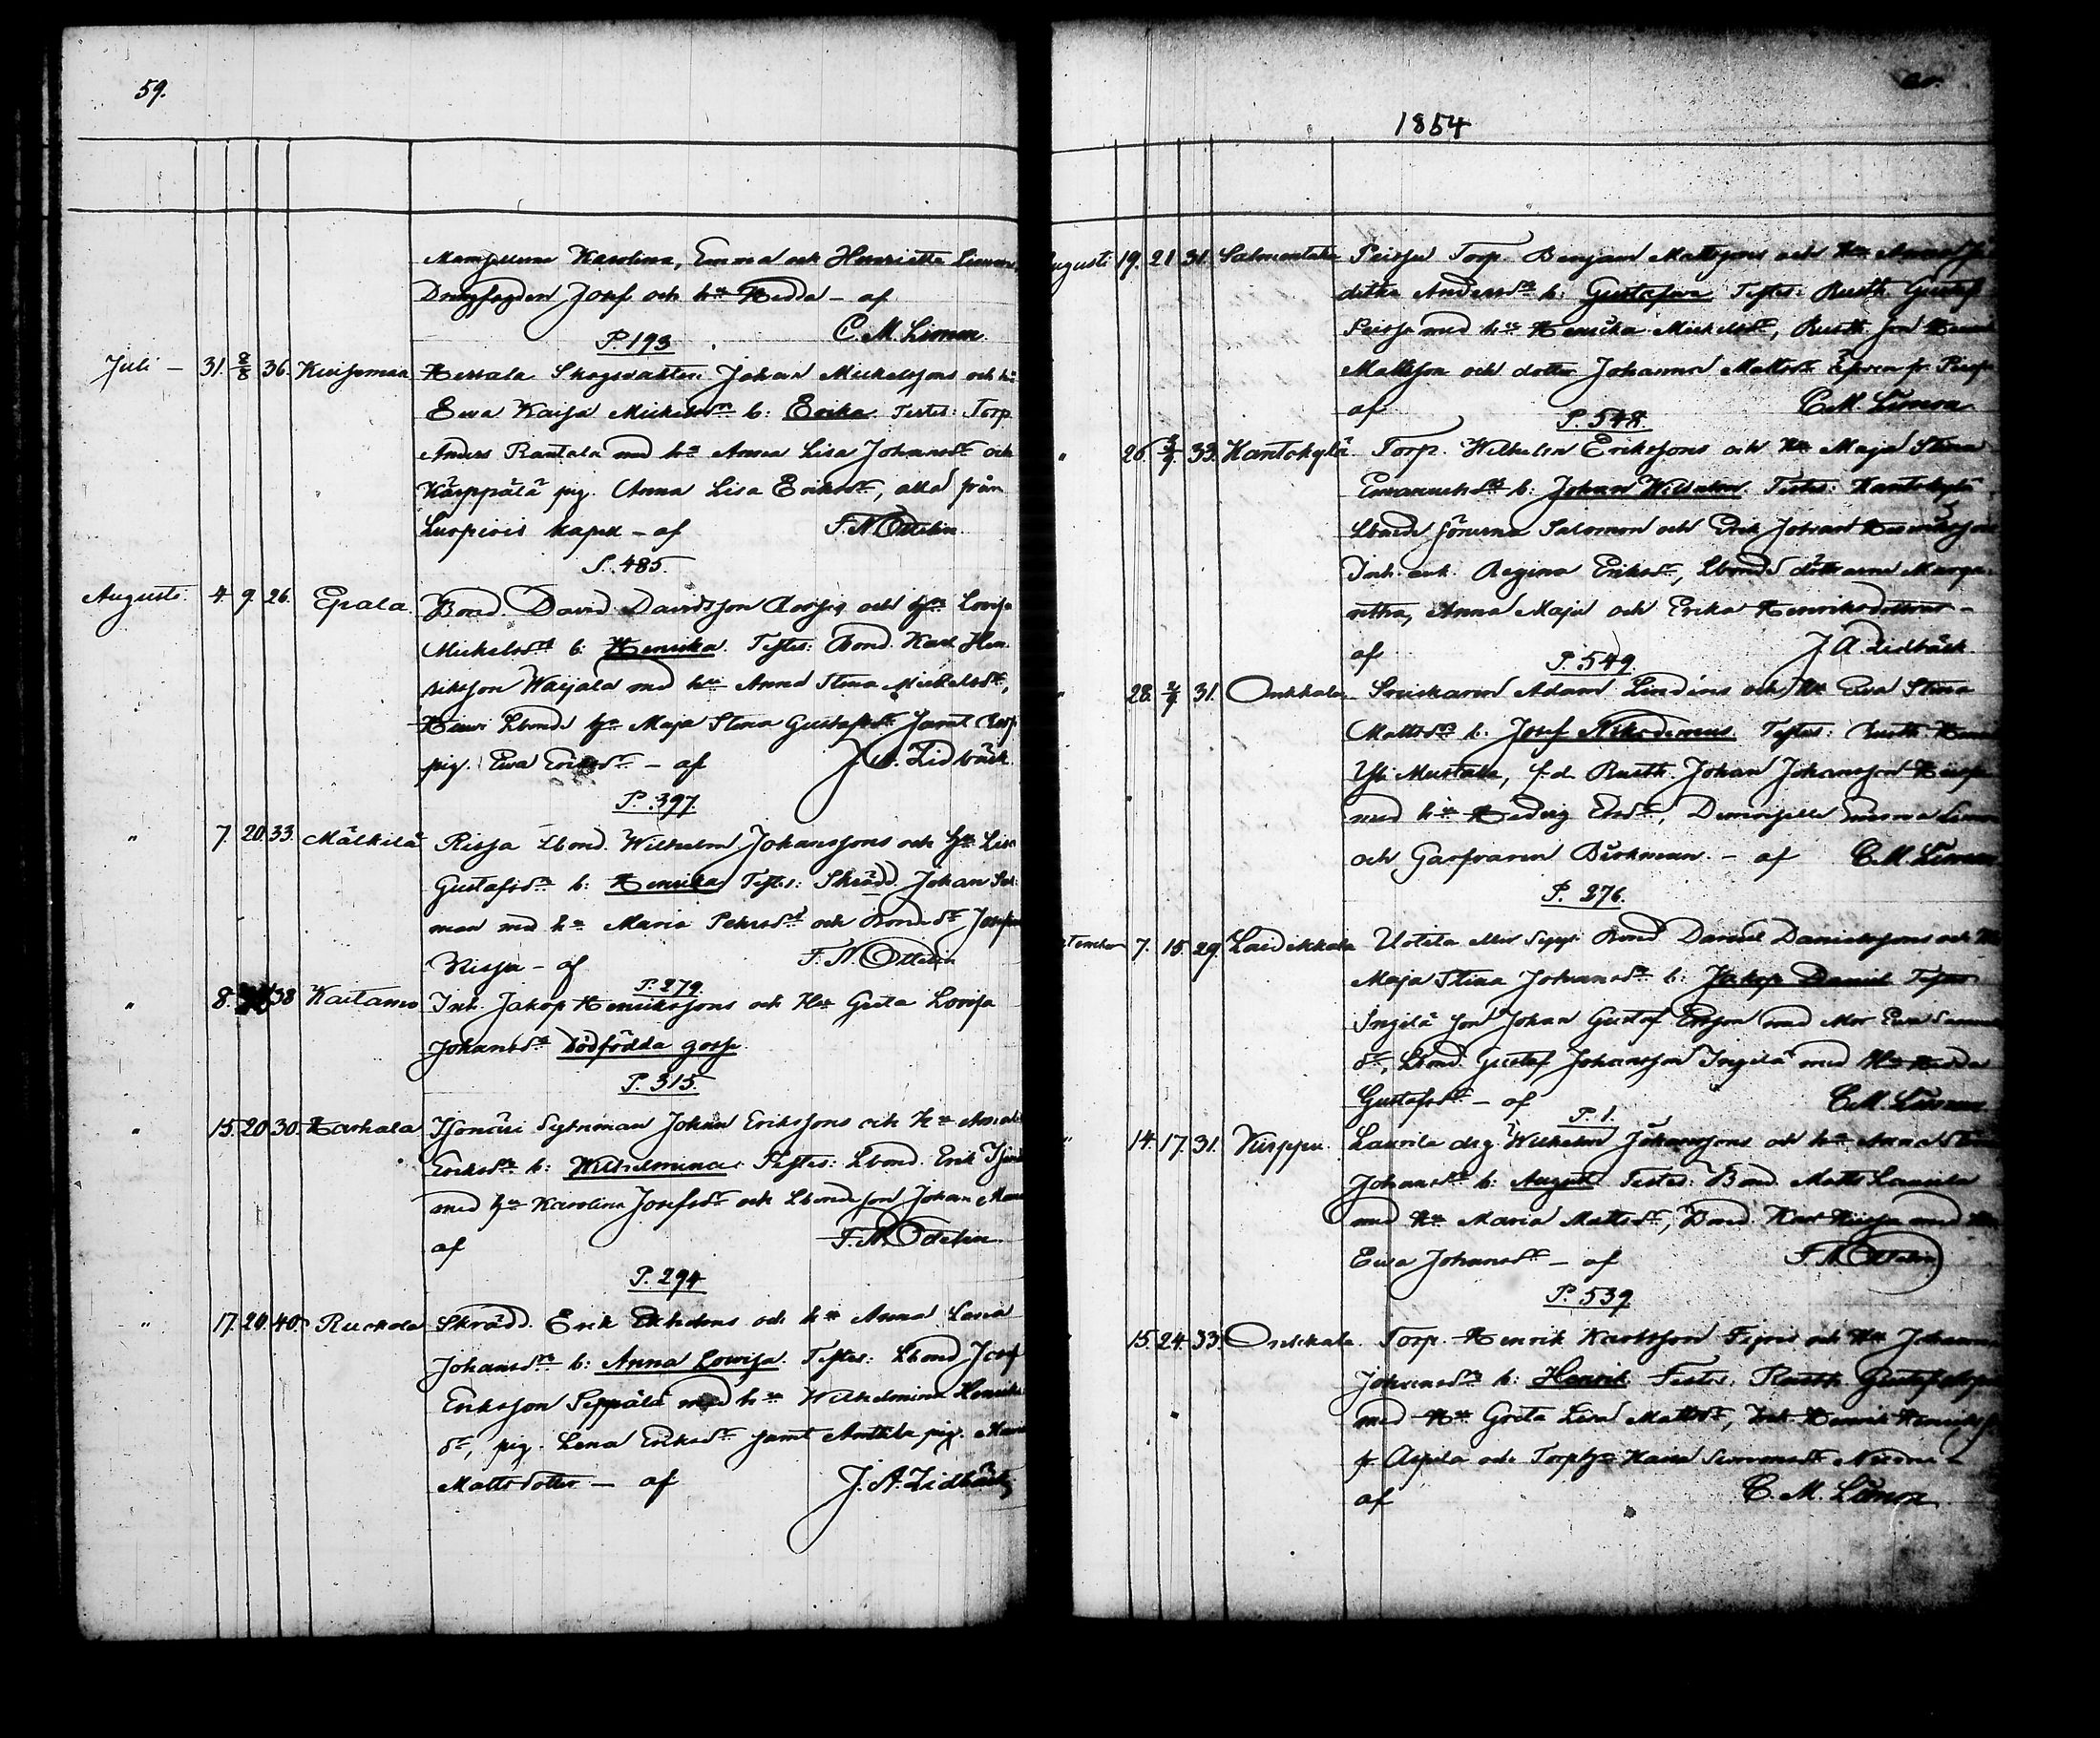 59.
Mamsellerna Karolina, Emma och Henrietta Limon,
Drängfogden Josef och hu Hedda – af
P. 193. C. M. Limon.
Juli – 31. 8/8 36. Kuisemaa Hessala Skogsvakten Johan Mickelssons och hu
Ewa Kaisa Mickelsdr b: Erika Testes: Torp.
Anders Rantala med hu Anna Lisa Johansdr och
Kärppälä pig. Anna Lisa Eriksdr, alla från
Luopiois kapell – af F. N. Ottelin
S. 485.
Augusti. 4. 9. 26. Epala. Bond. David Davidsson och hu Lovisa
Mickelsdr b: Henrika. Testes: Bond. Karl Hen-
riksson Waijala med hu Anna Stina Mickelsdr,
Lbonds hu Maja Stina Gustafsdr samt
pig. Ewa Eriksdr – af J. A. Lidbäck.
P. 397.
" 7. 20. 33. Mälkilä Rissa Lbond. Wilhelm Johanssons och hu Lisa
Gustafsdr b: Henrika Testes: Skrädd. Johan
man med hu Maria Petersdr och Bondedr
Rissa – af F. N. Ottelin
P. 279.
" 8. 38 Kaitamo Inh. Jakop Henrikssons och Hu Greta Lovisa
Johansdr Dödfödda gosse.
P. 315.
" 15. 20. 30. Harhala Isonäsi Sytninman Johan Erikssons och hu
Eriksdr b: Wilhelmina: Testes: Lbond. Erik
med hu Karolina Josefsdr och Lbondeson Johan
af F. N. Ottelin.
P. 294
" 17. 20. 40. Ruokola Skrädd. Erik och hu Anna Lovisa
Johansdr b: Anna Lowisa. Testes: Lbond Josef
Eriksson Seppälä med hu Wilhelmina Henriks
dr, pig. Lena Eriksdr samt Anttila pig. Maria
Mattsdotter – af J. A. Lidbäck
1854
Augusti 19. 21 31. Salmentaka Peissu Torp. Benjam Mattssons och hu
Andersdr b: Gustafwa Testes: Rusth. Gustaf
med hu Henrika Mickelsdr, Rusth. son
Mattsson och dotter Johanna Mattsdr
af C. M. Limon
P. 548.
" 26. 3/9 33. Kantokylä Torp. Wilhelm Erikssons och hu Maja Stina
Emanuelsdr b: Johan Wilhelm. Testes: Kantokylä
Lbonds sönerna Salomon och Erik Johan Henrikssons
Inh. enk. Regina Eriksdr, Lbonds döttrarne Marga-
retha, Anna Maja och Erika Henriksdöttrar –
af J. A. Lidbäck.
P. 549.
" 28. 31. Onkkala Snickaren Adam Lindéns och hu Ewa Stina
Mattsdr b: Josef Nikodemus. Testes: Rusth.
Yli Mustala, f.d. Rusth. Johan Johansson
med hu Hedvig Ersdr, Demoiselle Emma Limon
och Garfvaren Björkman. – af C. M. Limon
P. 276.
September 7. 15 29. Laidikkala Uotila eller Seppi Bond Daniel Danielssons och hu
Maja Stina Johansdr b: Jakop Daniel Testes
Ingilä son Johan Gustaf Ersson med Mor Ewa
dr, Lbond. Gustaf Johansson Ingilä med Hu Hedda
Gustafsdr – af C. M. Limon
P. 1.
" 14. 17. 31. Kirppu. Laurila drg Wilhelm Johanssons och hu Anna Stina
Johansdr b: August Testes: Bond. Matts Laurila
med Hu Maria Mattsdr, Bond. Karl med
Ewa Johansdr – af F. N. Ottelin
P. 539
15. 24. 33. Onkkala. Torp. Henrik Karlsson och hu Johanna
Johansdr b: Henrik Testes: Rusth. Gustaf
med Hu Greta Lisa Mattsdr, Inh. Henrik Henriksson
fr Aspila och Torp hu Kaisa Simonsdr –
af C. M. Limon